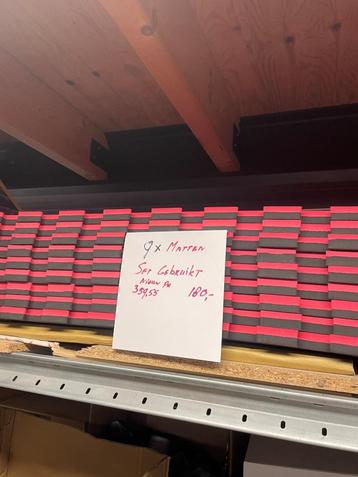 9 x MATTEN
SET GEBRUIKT
NIEUW
359,55 180,-